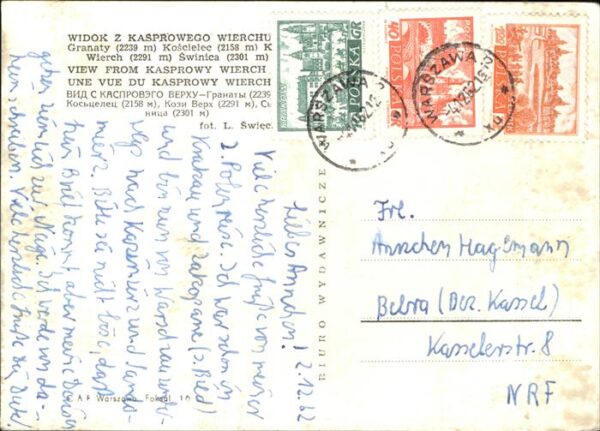 WIDOK Z KASPROWEGO WIERCHU
Granaty (2239 m) Kościelec (2158 m) K
Wierch (2291 m) Świnica (2301 m)
VIEW FROM KASPROWY WIERCH
UNE VUE DU KASPROWY WIERCH
ВИД С КАСПРОВЭГО ВЕРХУ—Гранаты (2239
Косьцелец (2158 м), Кози Верх (2291 м), Сь
ница (2301 м)
fot. L. Święc
POLSKA GR
40
POLSKA
WARSZAWA
WARSZAWA
BIURO WYDAWNICZE
C.A.F Warszawa Foksal 16
2.12.62
Liebes Annchen!
Viele herzliche Grüße von meiner
2. Polenreise. Ich war schon in
Krakau und Zakopane (s. Bild)
und bin nun von Warschau
nach Kazimierz und
Bitte sei nicht böse, daß
kein Brief kommt, aber meine
gehen ziemlich zur Neige. Ich werde von da-
heim schreiben. Viele herzliche Grüße
Frl.
Annchen Hagemann
Bebra (Bez. Kassel)
Kasselerstr. 8
NRF